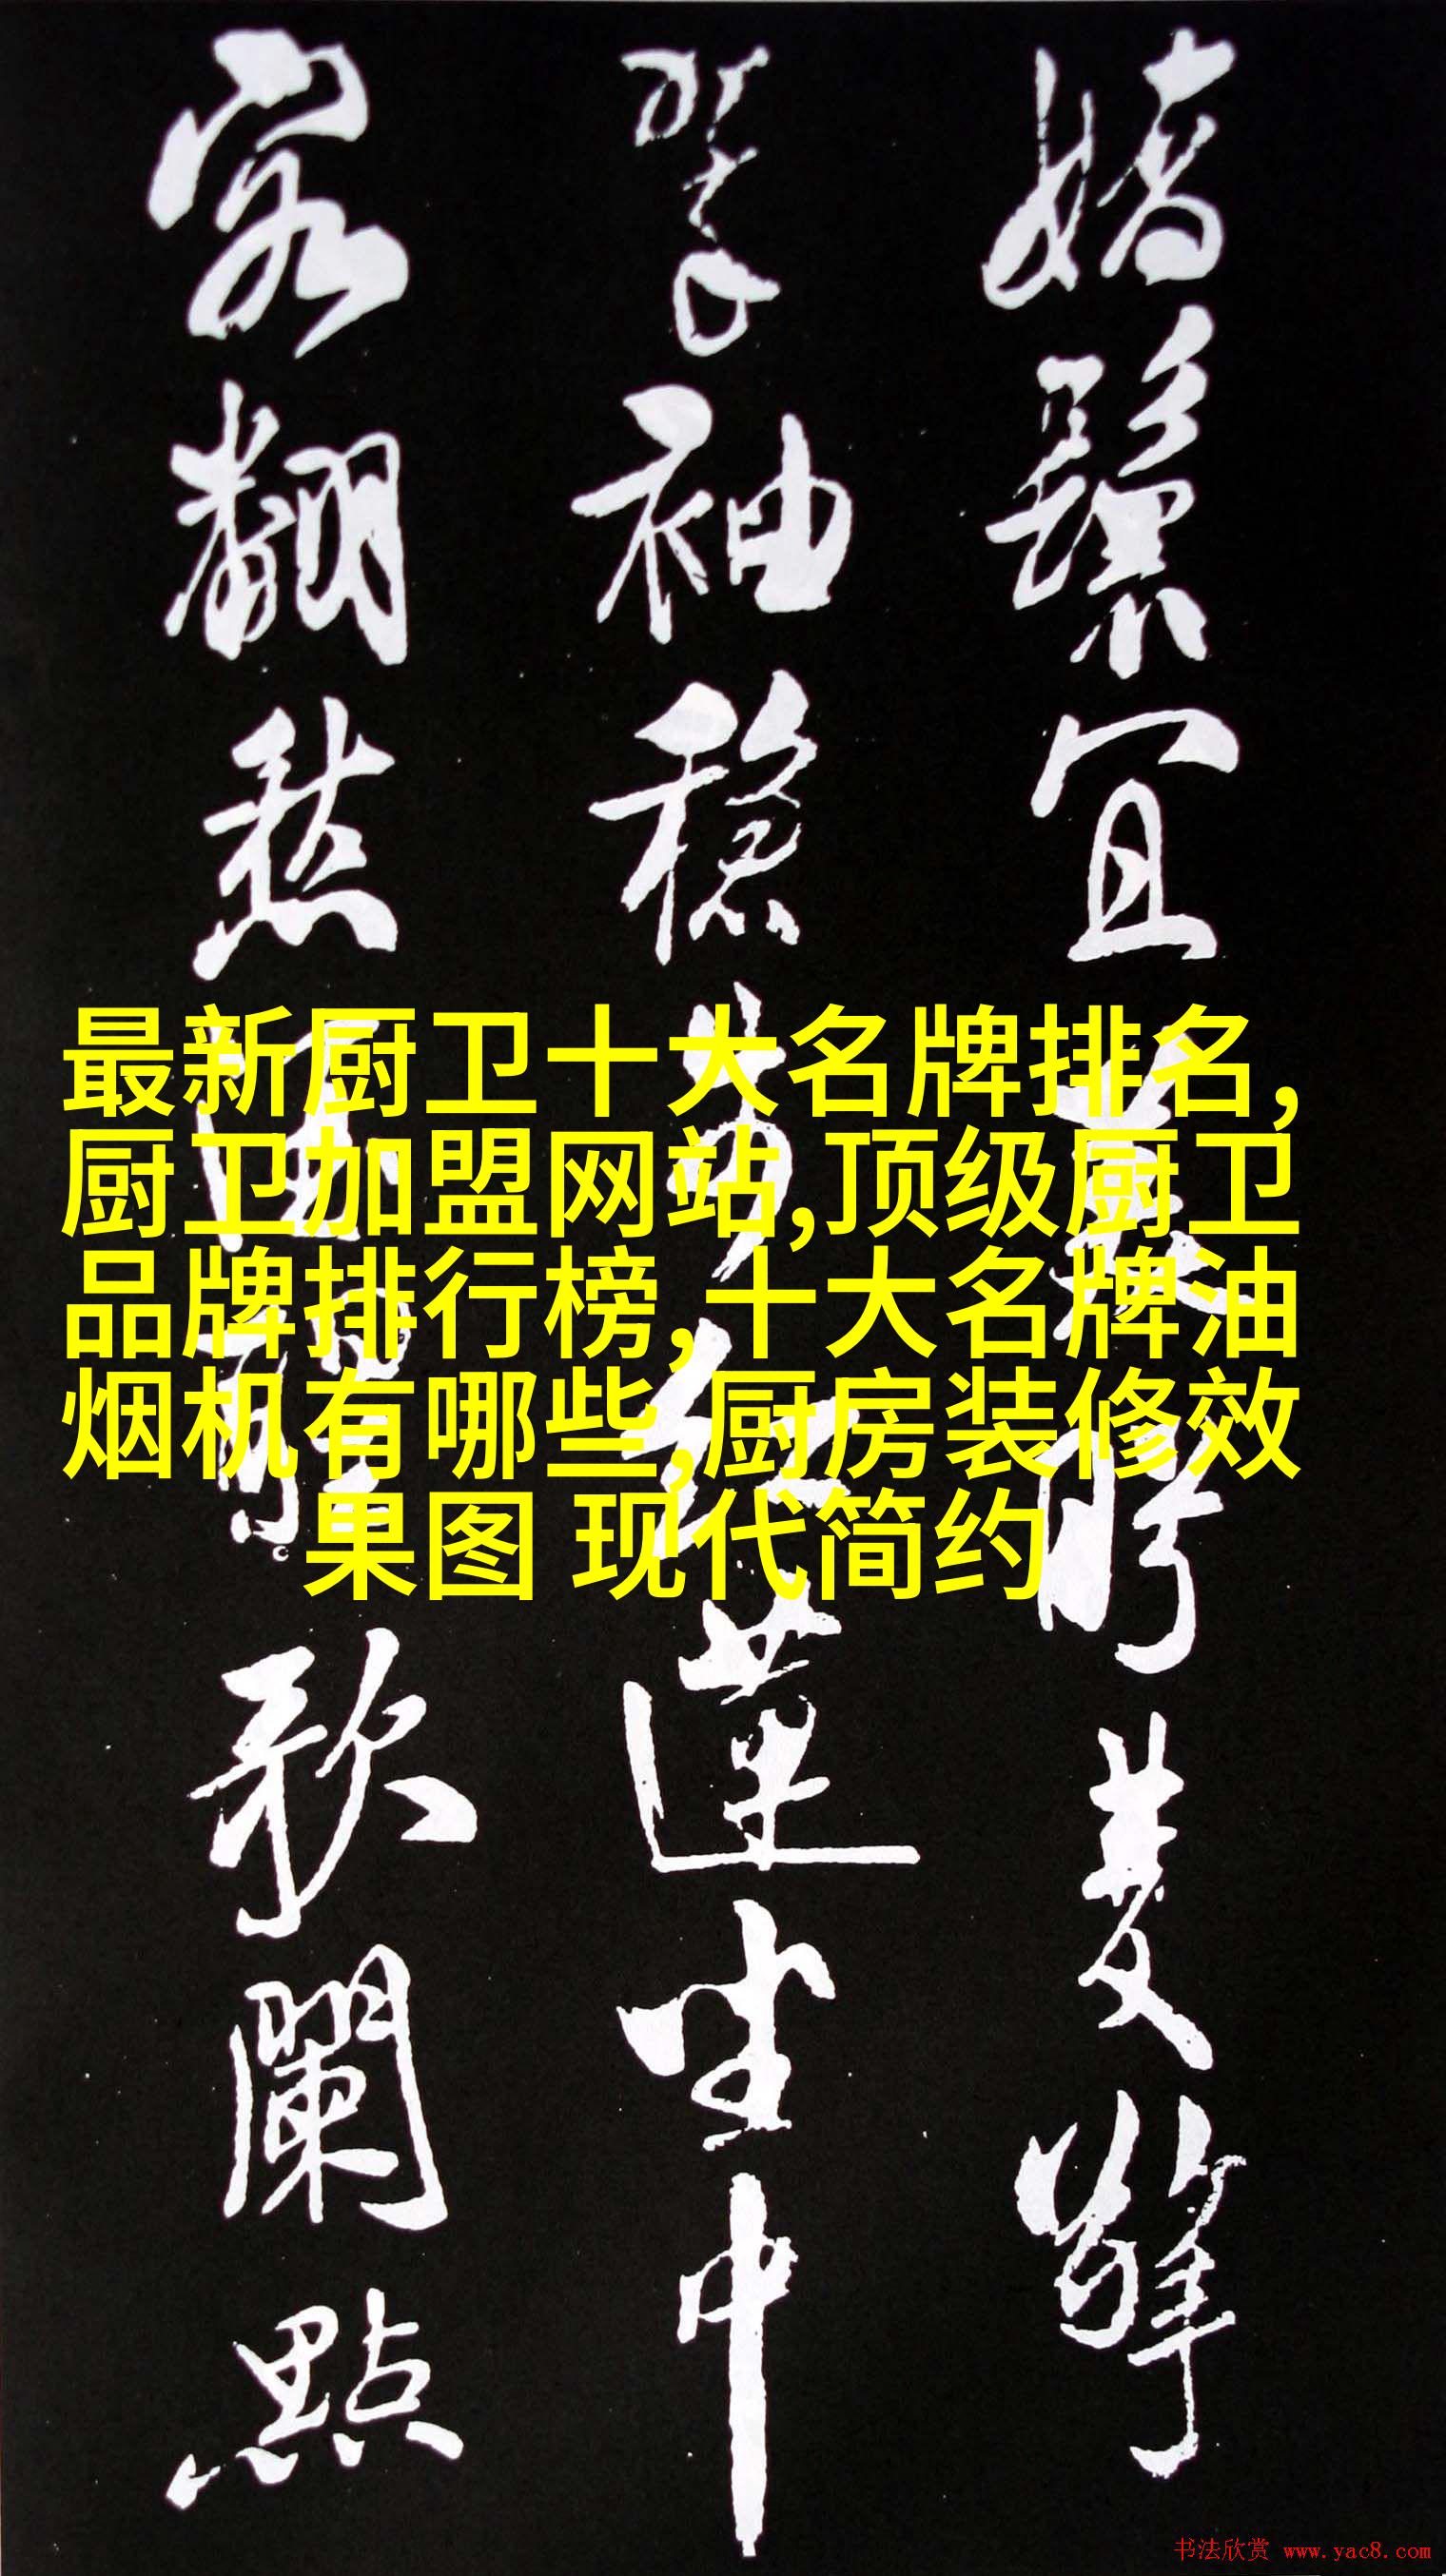 嬌鬟宜盼雙擎
翠袖穩蓮坐中
客翻愁歌闌點
最新厨卫十大名牌排名,
厨卫加盟网站,顶级厨卫
品牌排行榜,十大名牌油
烟机有哪些,厨房装修效
果图 现代简约
书法欣赏 www.yac8.com